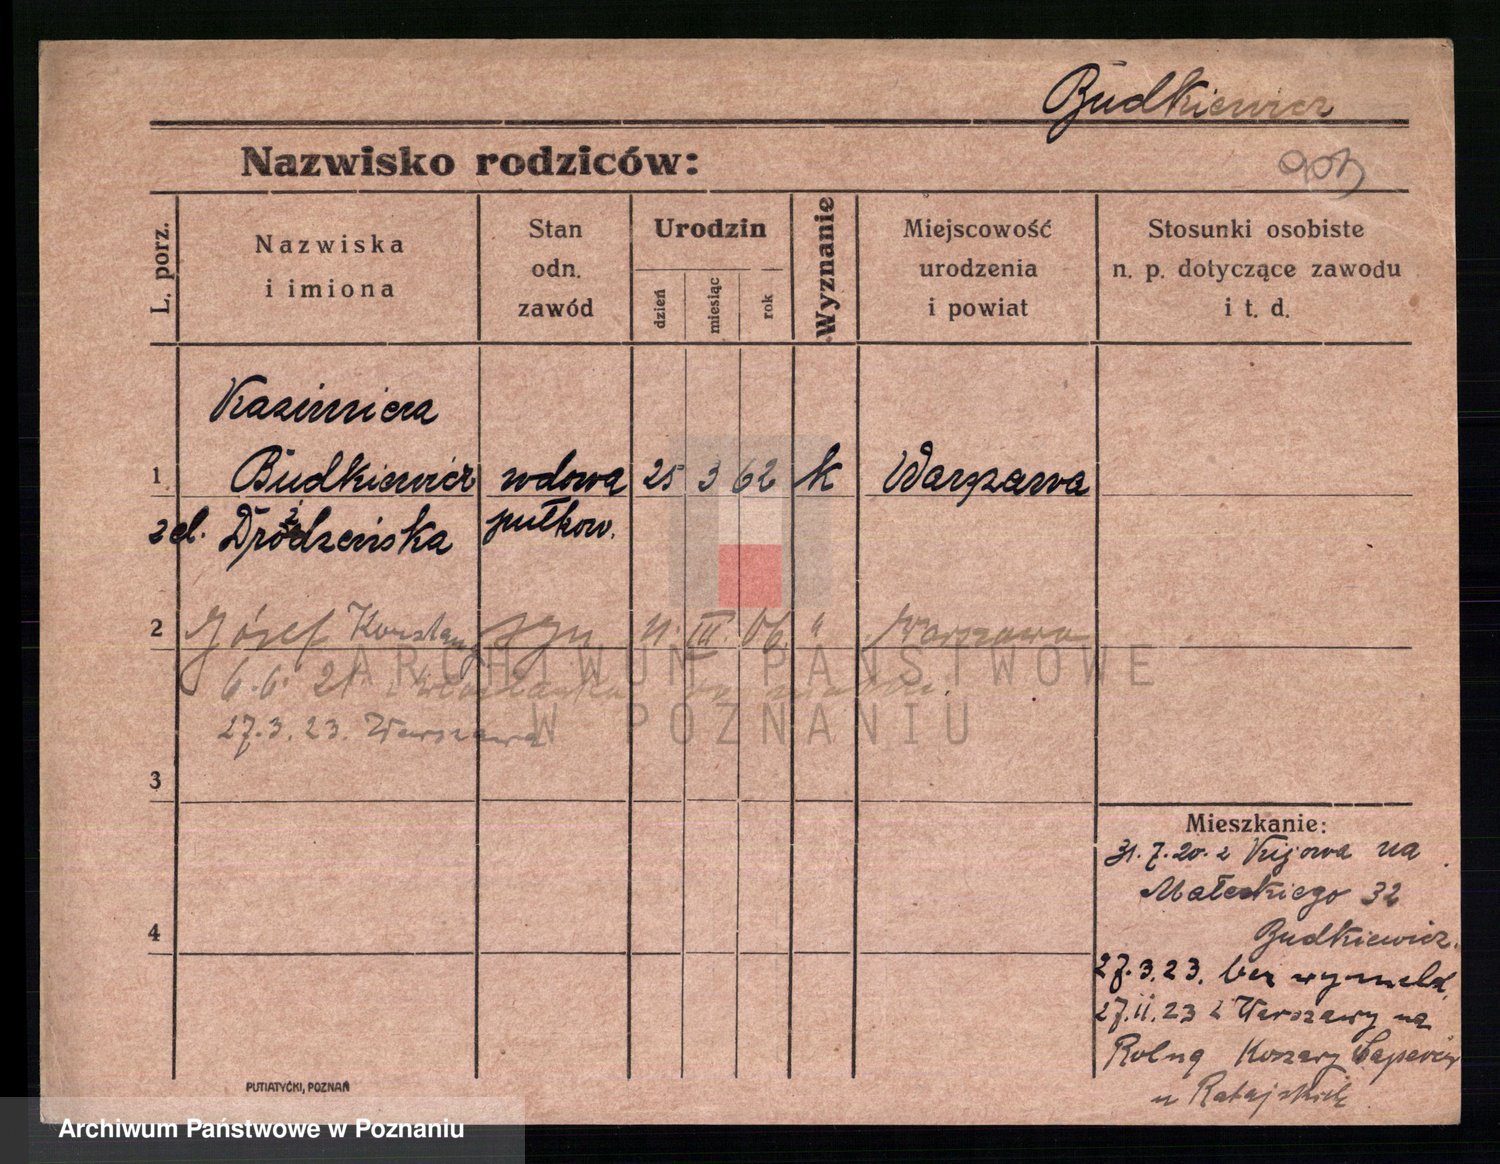 Budkiewicz
Nazwisko rodziców:
L. porz.
Nazwiska
i imiona
Stan
odn.
zawód
Urodzin
dzień
miesiąc
rok
Wyznanie
Miejscowość
urodzenia
i powiat
Stosunki osobiste
n. p. dotyczące zawodu
i t. d.
Kazimiera
1 Budkiewicz wdowa 25 3 62 k Warszawa
Dróżdzeńska pułkow.
2 Józef syn 11. III. 06. " Warszawa
6.6. 21
27.3.23. Warszawa
3
4
Mieszkanie:
31.7.20. z Kujowa na
Małeckiego 32
Budkiewicz.
27.3.23. bez wymeld.
27.11.23 z Warszawy na
Rolną Koszary
u Ratajskich
PUTIATYCKI, POZNAŃ
ARCHIWUM PAŃSTWOWE
W POZNANIU
Archiwum Państwowe w Poznaniu